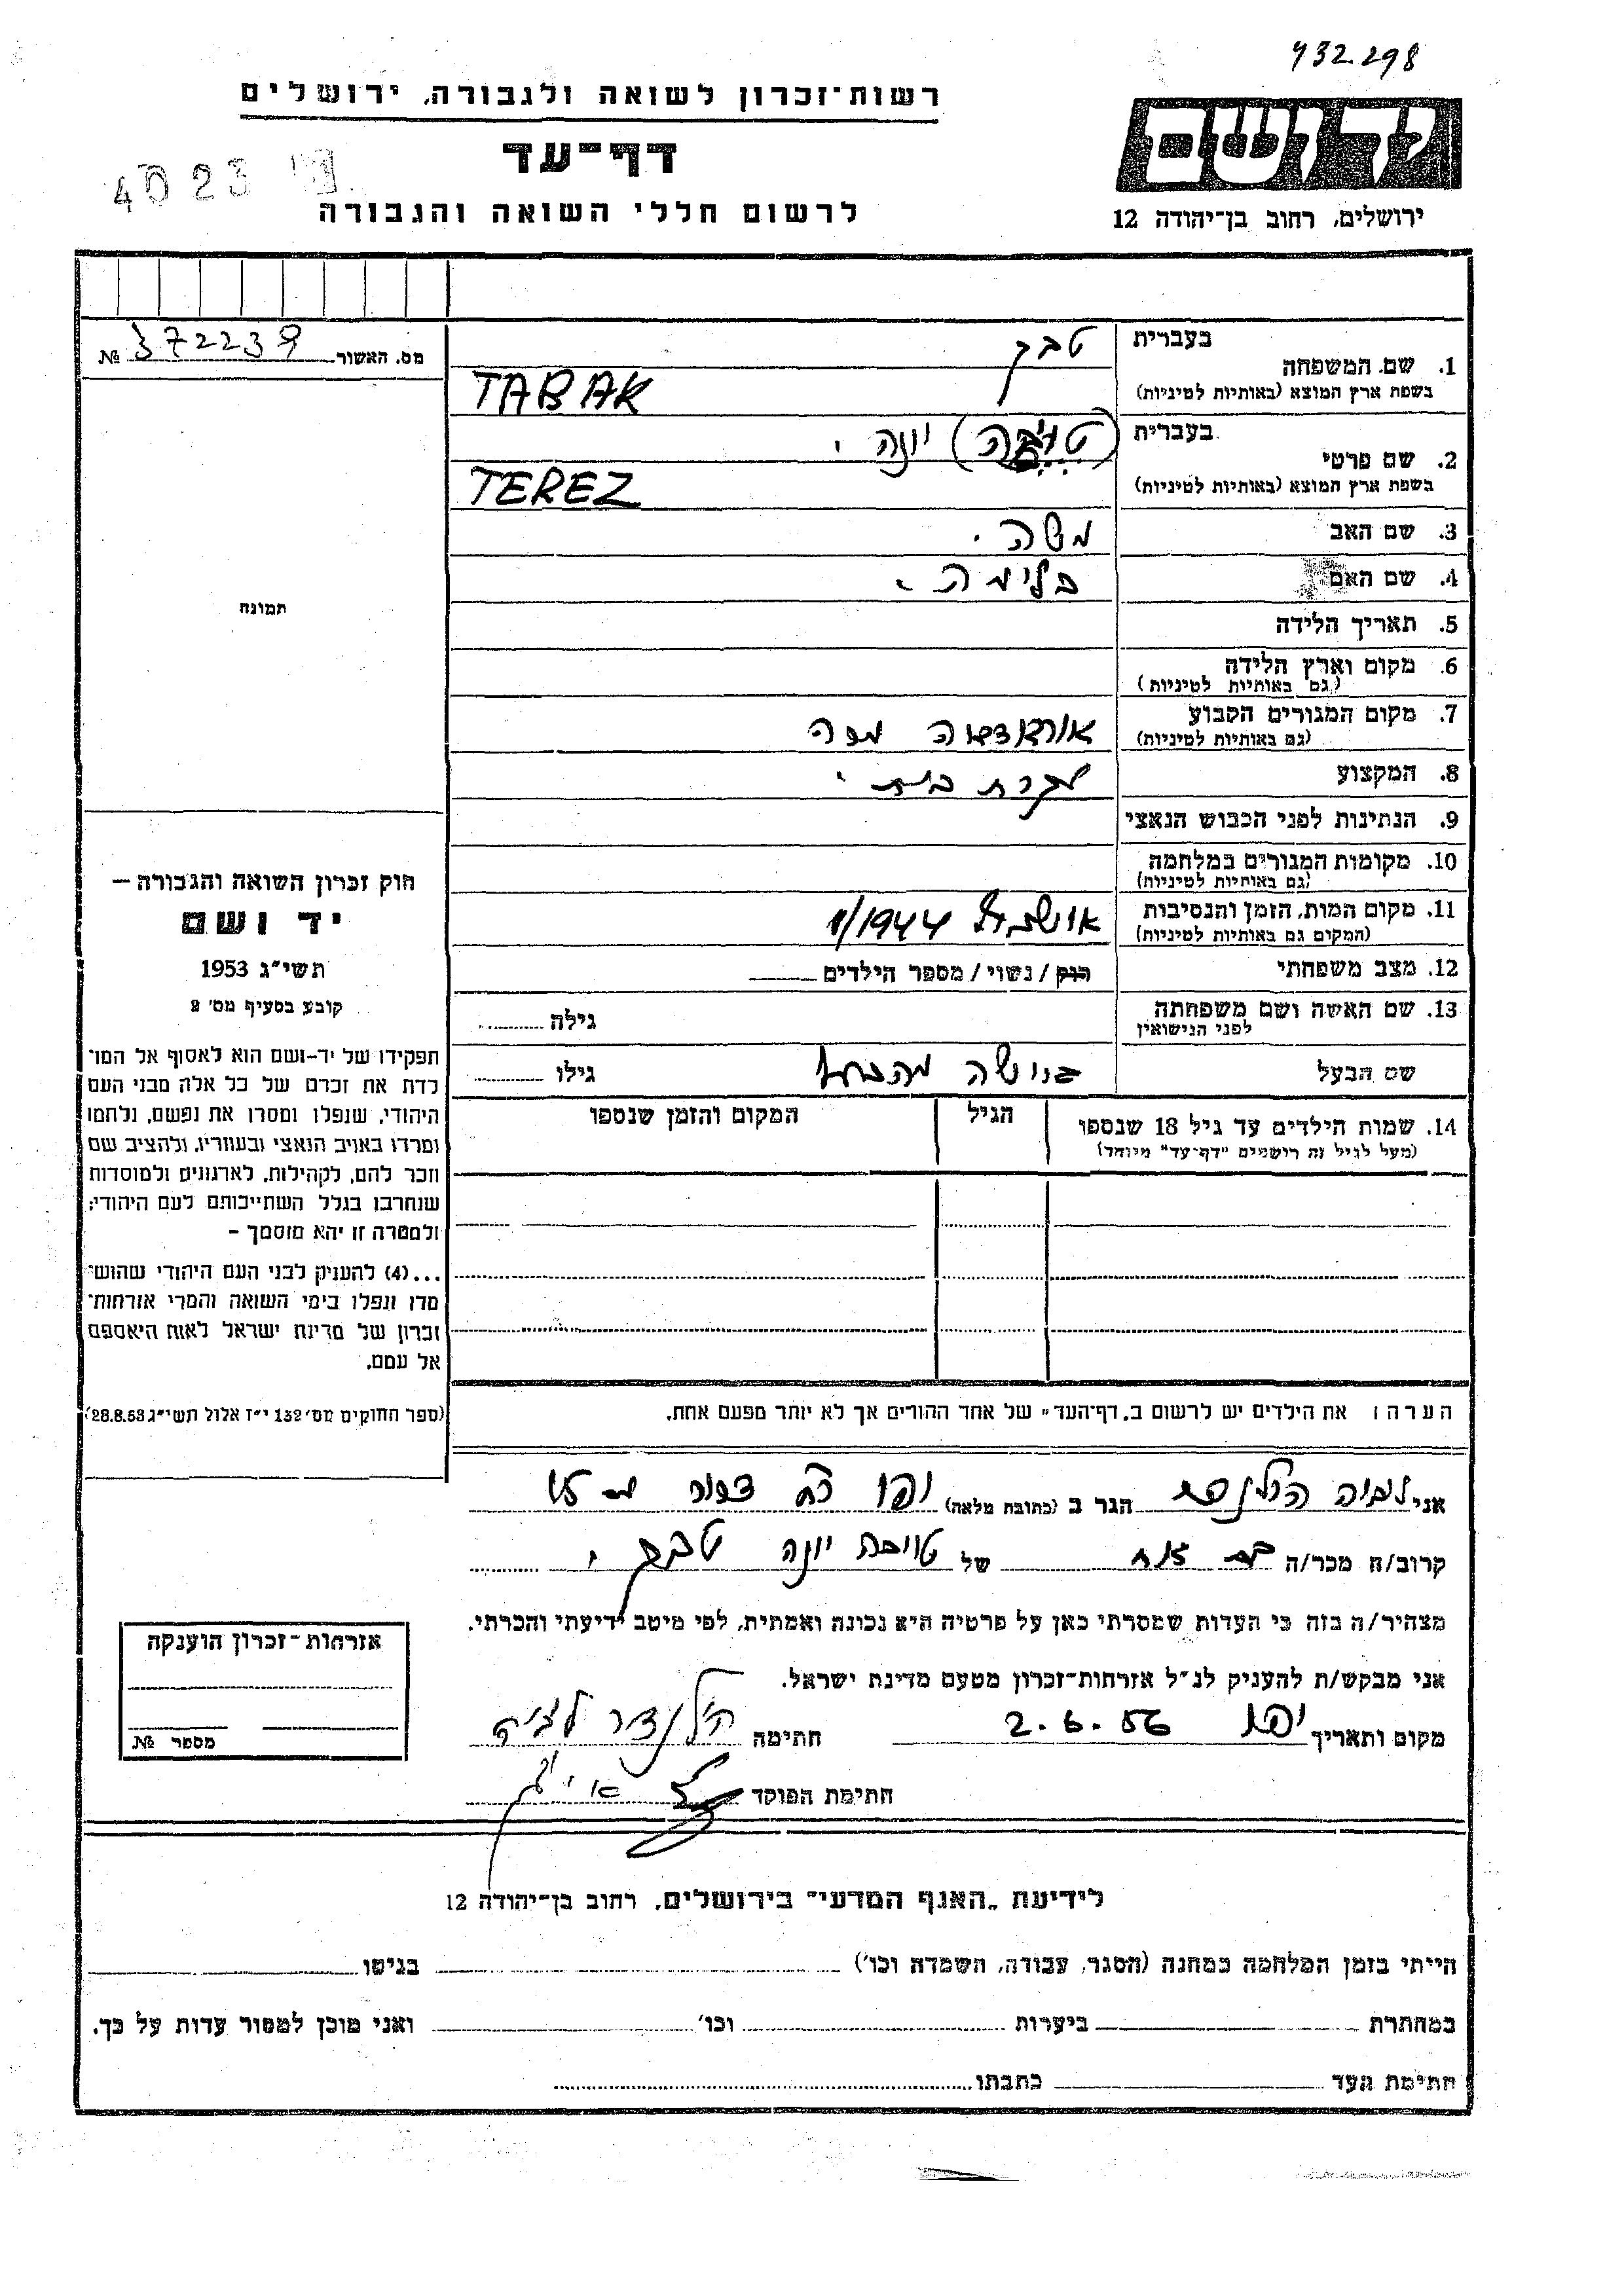 932.298
רשות־זכרון לשואה ולגבורה, ירושלים
יד ושם
דף־עד
4023
לרשום חללי השואה והגבורה
ירושלים, רחוב בן־יהודה 12
מס. האשור 372239 №
תמונה
בעברית טבק
1. שם המשפחה
בשפת ארץ המוצא (באותיות לטיניות) TABAK
בעברית (טובה) יונה
2. שם פרטי
בשפת ארץ המוצא (באותיות לטיניות) TEREZ
3. שם האב משה
4. שם האם בלימה
5. תאריך הלידה
6. מקום וארץ הלידה
(גם באותיות לטיניות)
7. מקום המגורים הקבוע
(גם באותיות לטיניות)
8. המקצוע עקרת בית
9. הנתינות לפני הכבוש הנאצי
10. מקומות המגורים במלחמה
(גם באותיות לטיניות)
11. מקום המות, הזמן והנסיבות אושביץ 1944
(המקום גם באותיות לטיניות)
12. מצב משפחתי רווק / נשוי / מספר הילדים
13. שם האשה ושם משפחתה גילה
לפני הנישואין
שם הבעל גילו
14. שמות הילדים עד גיל 18 שנספו הגיל המקום והזמן שנספו
(מעל לגיל זה רושמים "דף־עד" מיוחד)
הערה: את הילדים יש לרשום ב„דף־העד" של אחד ההורים אך לא יותר מפעם אחת.
חוק זכרון השואה והגבורה –
יד ושם
תשי"ג 1953
קובע בסעיף מס' 2
תפקידו של יד-ושם הוא לאסוף אל המו־
לדת את זכרם של כל אלה מבני העם
היהודי, שנפלו ומסרו את נפשם, נלחמו
ומרדו באויב הנאצי ובעוזריו, ולהציב שם
וזכר להם, לקהילות, לארגונים ולמוסדות
שנחרבו בגלל השתייכותם לעם היהודי;
ולמטרה זו יהא מוסמך –
...(4) להעניק לבני העם היהודי שהוש־
מדו ונפלו בימי השואה והמרי אזרחות־
זכרון של מדינת ישראל לאות היאספם
אל עמם.
(ספר החוקים מס' 132 י"ז אלול תשי"ג 28.8.53)
אני הגר ב (כתובת מלאה) יפו
קרוב/ה מכר/ה של טובה יונה טבק
מצהיר/ה בזה כי העדות שמסרתי כאן על פרטיה היא נכונה ואמתית, לפי מיטב ידיעתי והכרתי.
אני מבקש/ת להעניק לנ"ל אזרחות־זכרון מטעם מדינת ישראל.
מקום ותאריך יפו 2.6.56 חתימה
חתימת הפוקד
אזרחות־זכרון הוענקה
מספר №
לידיעת „האגף המדעי" בירושלים, רחוב בן־יהודה 12
הייתי בזמן המלחמה במחנה (הסגר, עבודה, השמדה וכו') בגיטו
במחתרת ביערות וכו' ואני מוכן למסור עדות על כך.
חתימת העד כתבתו